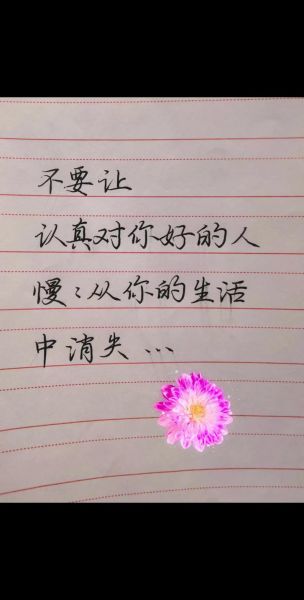 不要让
认真对你好的人
慢:从你的生活
中消失...